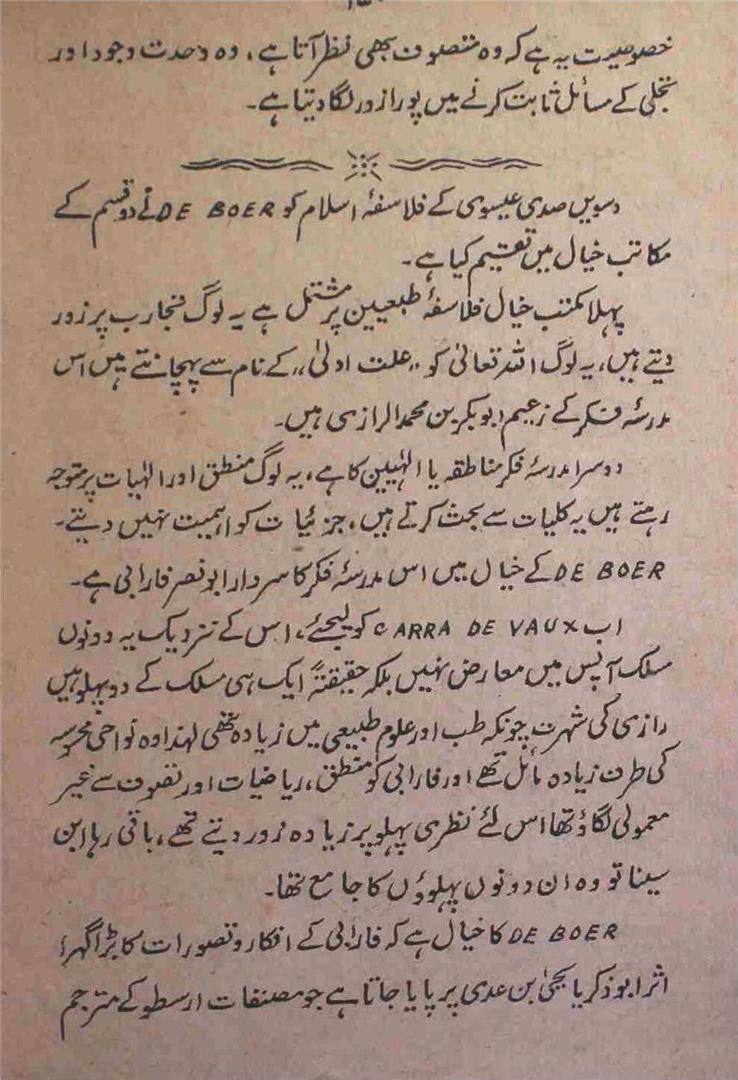 خصوصیت یہ ہے کہ وہ متصوف بھی نظر آتا ہے، وہ وحدت وجود اور
تجلی کے مسائل ثابت کرنے میں پورا زور لگا دیتا ہے۔
دسویں صدی عیسوی کے فلاسفۂ اسلام کو DE BOER نے دو قسم کے
مکاتب خیال میں تقسیم کیا ہے۔
پہلا مکتب خیال فلاسفۂ طبعیین پر مشتمل ہے یہ لوگ تجارب پر زور
دیتے ہیں، یہ لوگ اللہ تعالیٰ کو ،،علت اولیٰ،، کے نام سے پہچانتے ہیں اس
مدرسۂ فکر کے زعیم ابوبکر بن محمد الرازی ہیں۔
دوسرا مدرسۂ فکر مناطقہ یا الہٰیین کا ہے، یہ لوگ منطق اور الہٰیات پر متوجہ
رہتے ہیں یہ کلیات سے بحث کرتے ہیں، جزئیات کو اہمیت نہیں دیتے۔
DE BOER کے خیال میں اس مدرسۂ فکر کا سردار ابونصر فارابی ہے۔
اب CARRA DE VAUX کو لیجئے، اس کے نزدیک یہ دونوں
مسلک آپس میں معارض نہیں بلکہ حقیقتہً ایک ہی مسلک کے دو پہلو ہیں
رازی کی شہرت چونکہ طب اور علوم طبیعی میں زیادہ تھی لہٰذا وہ نواحی محسوسہ
کی طرف زیادہ مائل تھے اور فارابی کو منطق، ریاضیات اور تصوف سے غیر
معمولی لگاؤ تھا اس لئے نظری پہلو پر زیادہ زور دیتے تھے، باقی رہا ابن
سینا تو وہ ان دونوں پہلوؤں کا جامع تھا۔
DE BOER کا خیال ہے کہ فارابی کے افکار و تصورات کا بڑا گہرا
اثر ابو ذکریا یحییٰ بن عدی پر پایا جاتا ہے جو مصنفات ارسطو کے مترجم